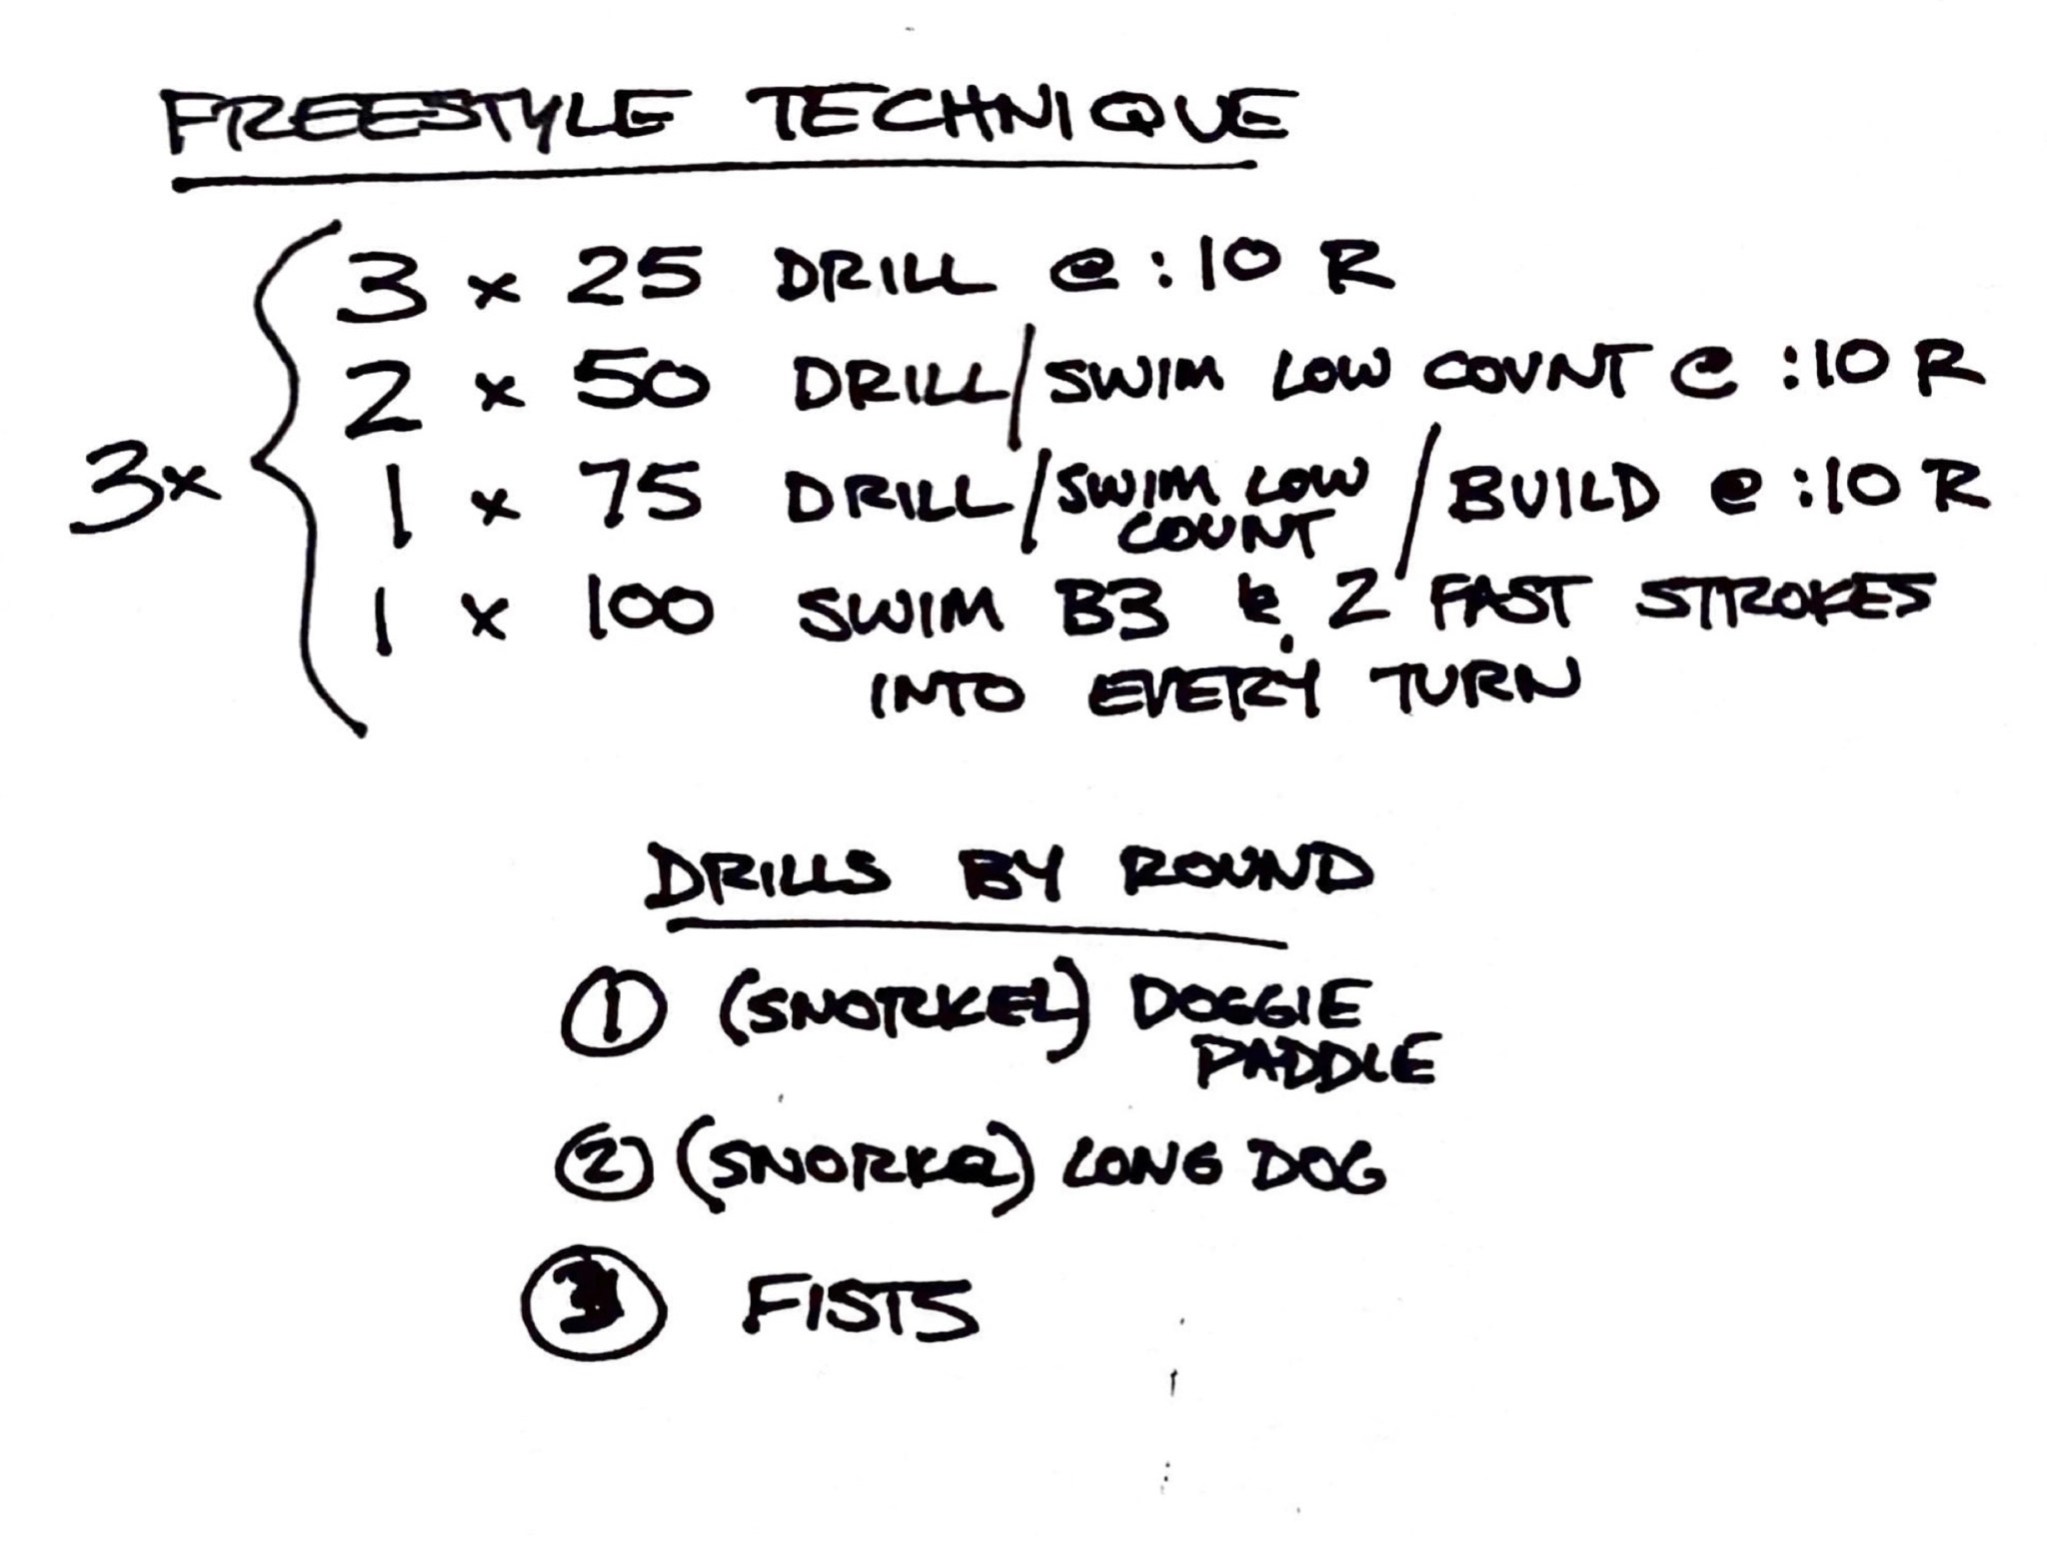 FREESTYLE TECHNIQUE
3 x 25 DRILL @ :10 R
2 x 50 DRILL/SWIM LOW COUNT @ :10 R
3x
1 x 75 DRILL/SWIM LOW COUNT/BUILD @ :10 R
1 x 100 SWIM B3 & 2 FAST STROKES
INTO EVERY TURN
DRILLS BY ROUND
① (SNORKEL) DOGGIE
PADDLE
② (SNORKEL) LONG DOG
③ FISTS